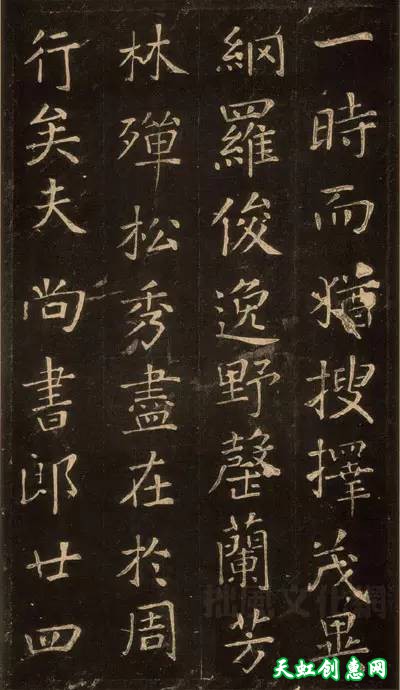 一時而猶搜擇茂異
網羅俊逸野罄蘭芳
林殫松秀盡在於周
行矣夫尚書郎廿四
拙風文化網
天虹创惠网